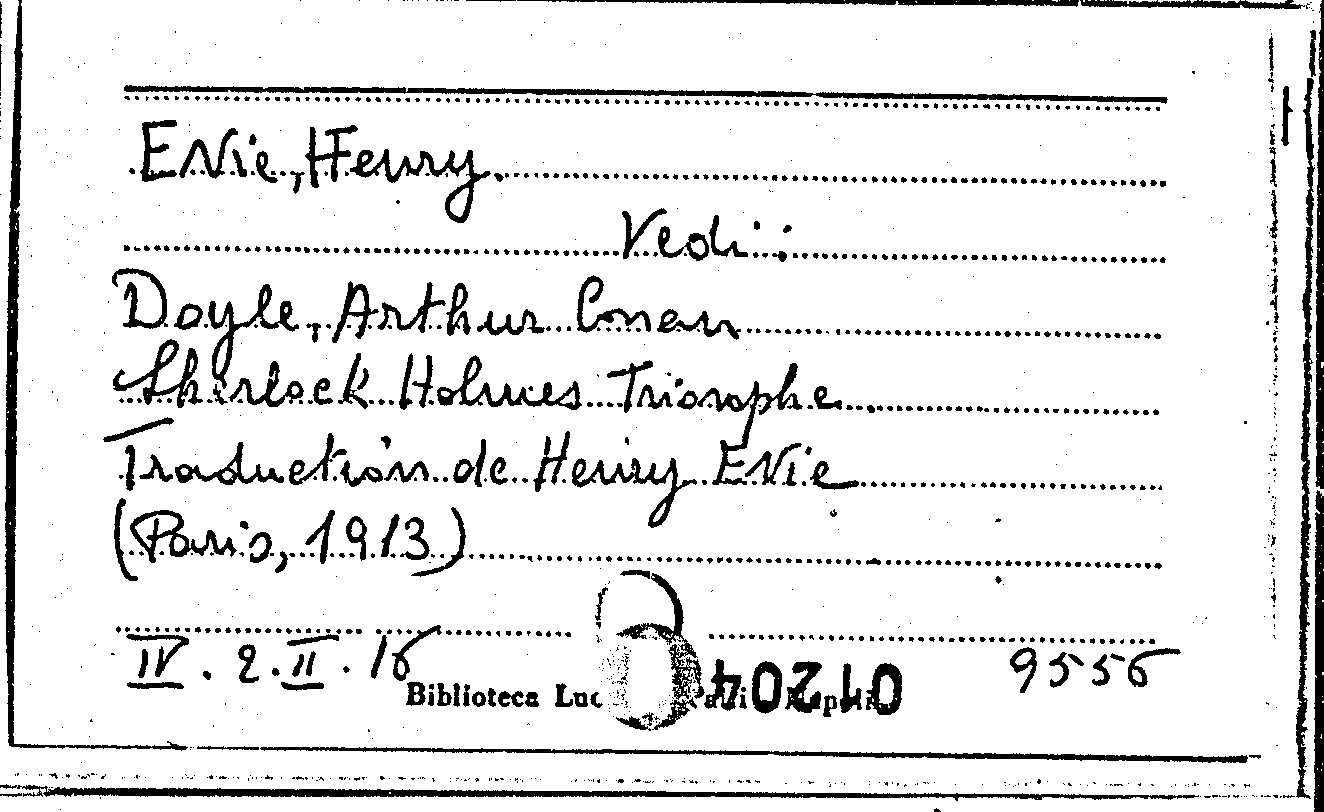 ENie, Henry.
Vedi:
Doyle, Arthur Conan
Sherlock Holmes Triomphe.
Traduction de Henry ENie
(Paris, 1913)
IV. 2. II. 16
9556
Biblioteca
01204